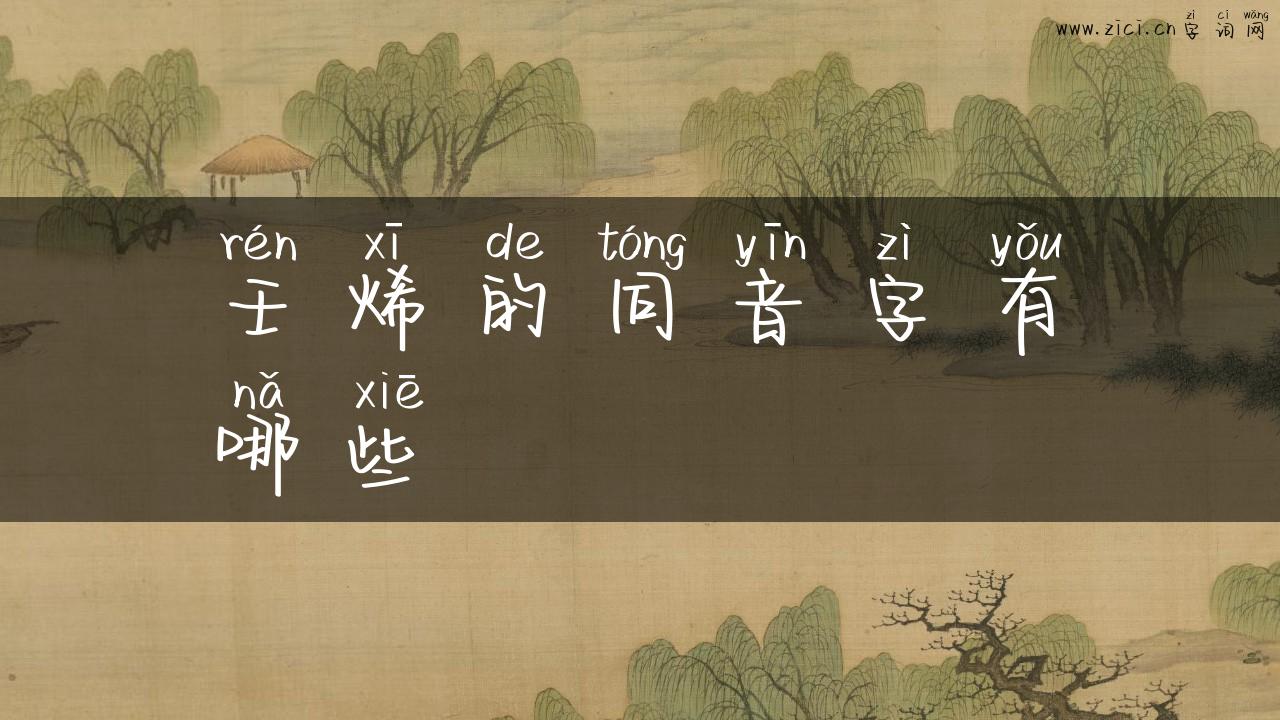 zì cí wǎng
www.zici.cn 字 词 网
rén xī de tóng yīn zì yǒu
壬 烯 的 同 音 字 有
nǎ xiē
哪 些